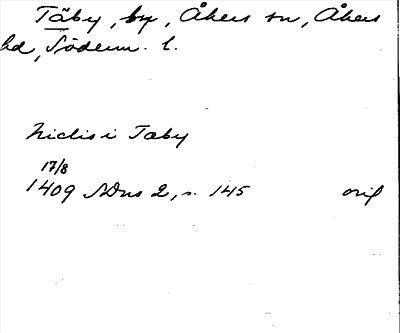 Täby, by, Åkers sn, Åkers
hd, Söderm. l.
Niclis i Taby
17/8
1409 SDns 2, s. 145 orig